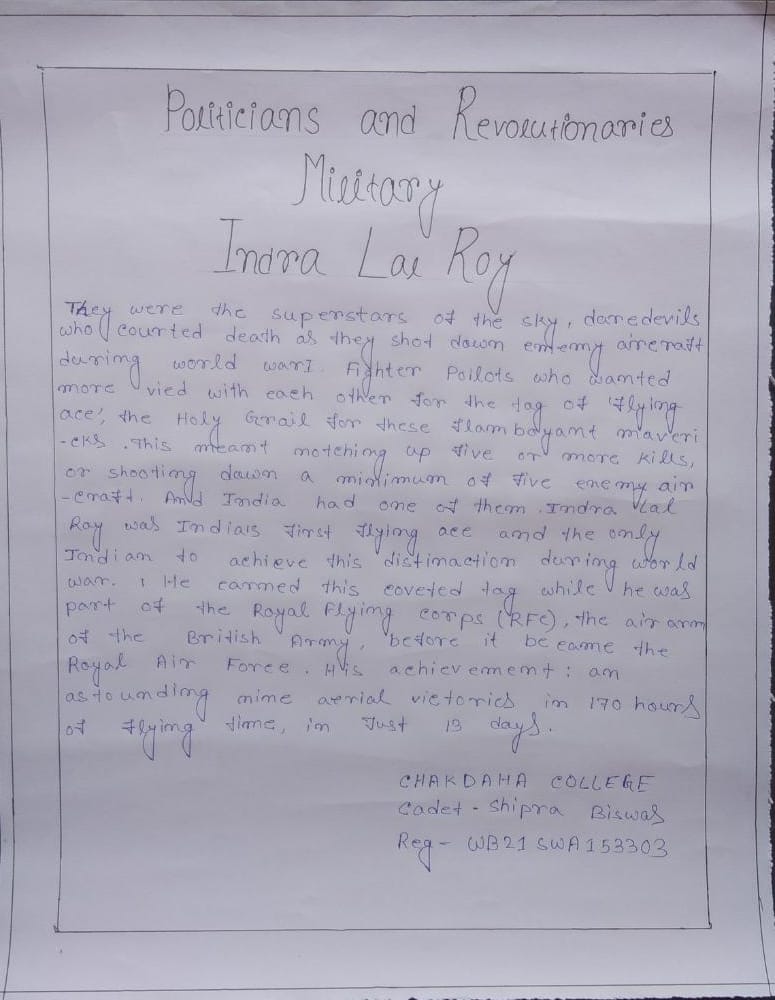 Politicians and Revolutionaries
Military
Indra Lal Roy
They were the superstars of the sky, daredevils
who courted death as they shot down enemy aircraft
during world war I. Fighter Poilots who wanted
more vied with each other for the tag of 'flying
ace', the Holy Grail for these flamboyant maveri
-cks. This meant notching up five or more kills,
or shooting down a minimum of five enemy air
-craft. And India had one of them. Indra Lal
Roy was India's first flying ace and the only
Indian to achieve this distinaction during world
war. I He earned this coveted tag while he was
part of the Royal Flying corps (RFC), the air arm
of the British Army, before it became the
Royal Air Force. His achievement: an
astounding nine aerial victories in 170 hours
of flying time, in Just 13 days.
CHAKDAHA COLLEGE
Cadet - Shipra Biswas
Reg - WB21SWA153303